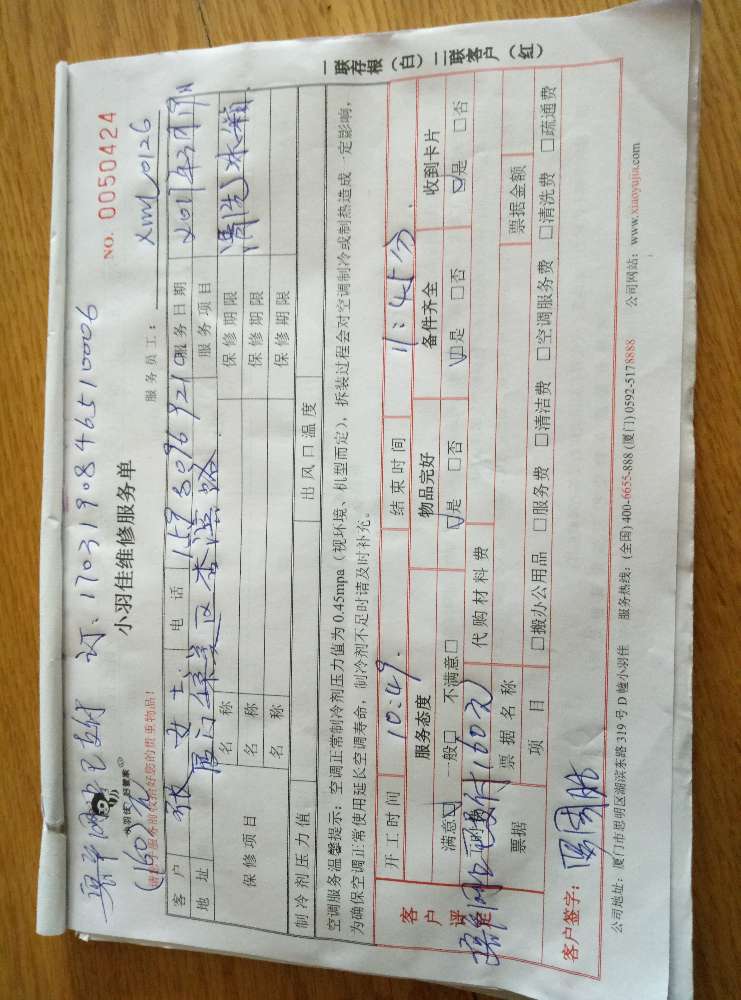 订、1703190846510006
NO. 0050424
小羽佳维修服务单
服务员工： xm10126
(160元)
请在服务前收拾好您的贵重物品！
客户 张女士 电话 服务日期 2017年3月19日
地址 厦门集美区杏滨路 服务项目 清洗冰箱
保修项目 名称 保修期限
名称 保修期限
名称 保修期限
制冷剂压力值 出风口温度
空调服务温馨提示：空调正常制冷剂压力值为 0.45mpa（视环境、机型而定），拆装过程会对空调制冷或制热造成一定影响，
为确保空调正常使用延长空调寿命，制冷剂不足时请及时补充。
一联存根（白）二联客户（红）
开工时间 10:49. 结束时间 11:45分
客户评 服务态度 物品完好 备件齐全 收到卡片
满意☑ 一般□ 不满意□ ☑是 □否 ☑是 □否 ☑是 □否
已支付160元 代购材料费
票据 票据名称 票据金额
项目 □搬办公用品 □服务费 □清洁费 □空调服务费 □清洗费 □疏通费
客户签字：
公司地址：厦门市思明区湖滨东路 319 号 D 幢小羽佳 服务热线：(全国) 400-6655-888 (厦门) 0592-5178888 公司网站：www.xiaoyujia.com